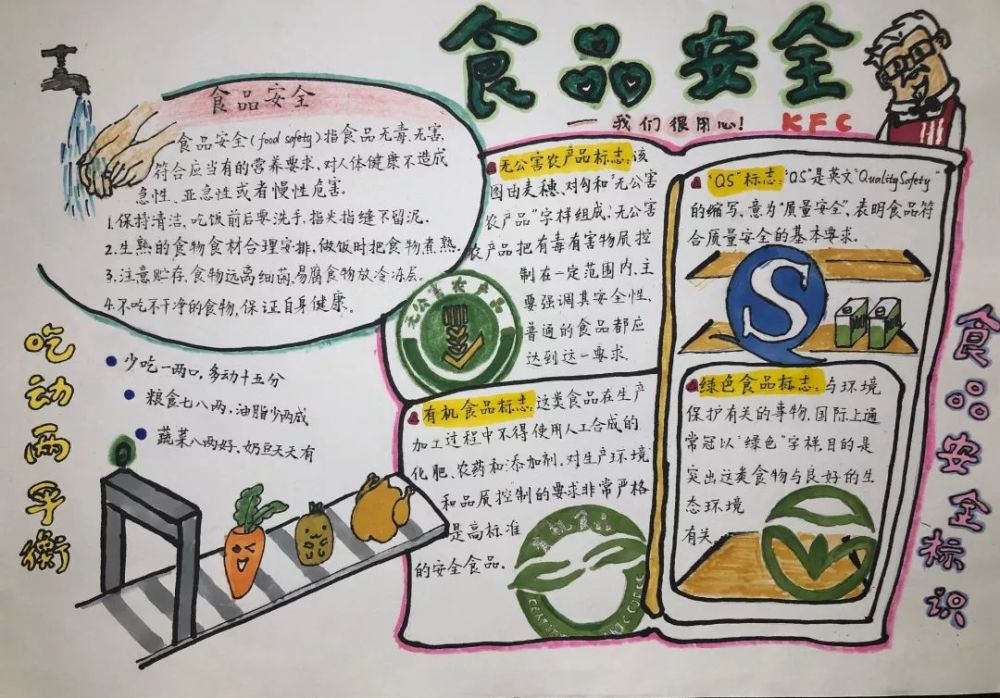 食品安全
一我们很用心!
KFC
食品安全
食品安全(food safety)指食品无毒、无害,
符合应当有的营养要求,对人体健康不造成
急性、亚急性或者慢性危害.
1.保持清洁,吃饭前后要洗手,指米指缝不留泥.
2.生熟的食物食材合理安排,做饭时把食物煮熟.
3.注意贮存,食物远离细菌,易腐食物放冷冻层.
4.不吃不干净的食物,保证自身健康.
吃动两平衡
少吃一两口,多动十五分
粮食七八两,油脂少两成
蔬菜八两好,奶豆天天有
无公害农产品标志:该
图由麦穗、对勾和"无公害
农产品"字样组成,无公害
农产品把有毒有害物质控
制在一定范围内,主
要强调其安全性,
普通的食品都应
达到这一要求
无公害农产品
有机食品标志:这类食品在生产
加工过程中不得使用人工合成的
化肥、农药和添加剂,对生产环境
和品质控制的要求非常严格
是高标准
的安全食品.
有机食品
"QS"标志:"QS"是英文"Quality Safety"
的缩写,意为"质量安全",表明食品符
合质量安全的基本要求.
S
绿色食品标志:与环境
保护有关的事物,国际上通
常冠以"绿色"字样,目的是
突出这类食物与良好的生
态环境
有关.
食品安全标识